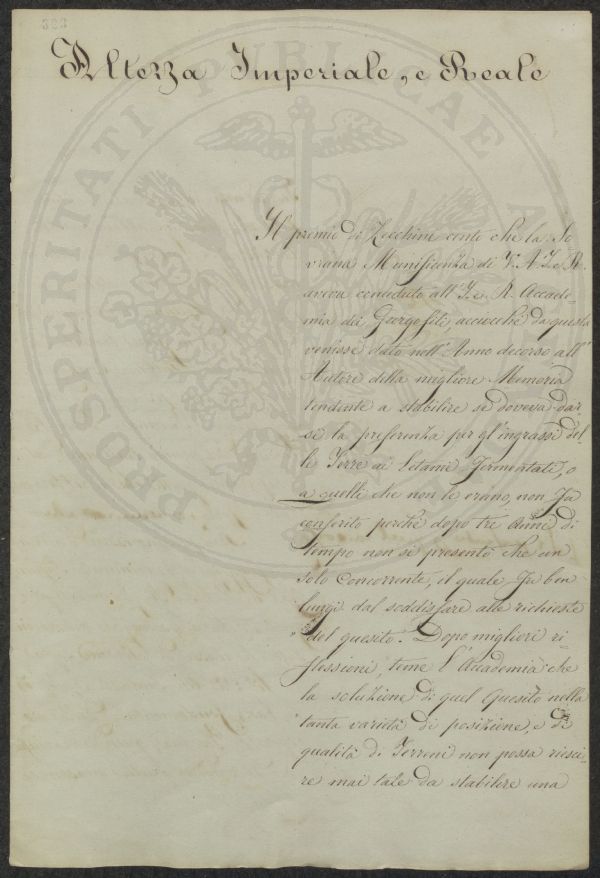 323
Altezza Imperiale, e Reale
Il premio di Zecchini cento che la So
vrana Munificenza di V. A. I. e R.
aveva conceduto all' I. e R. Accade=
mia dei Georgofili, acciocchè da questa
venisse dato nell' Anno decorso, all'
Autore della migliore Memoria
tendente a stabilire se doveva dar=
si la preferenza per gl' ingrassi del=
le Terre ai Letami fermentati, o
a quelli che non lo erano, non fu
conferito perchè dopo tre Anni di
tempo non si presentò che un
solo Concorrente, il quale fu ben
lungi dal soddisfare alle richieste
del quesito. Dopo migliori ri=
flessioni, teme l' Accademia che
la soluzione di quel Quesito nella
tanta varietà di posizione, e di
qualità di Terreni non possa riesci=
re mai tale da stabilire una
PROSPERITATI PUBLICAE A